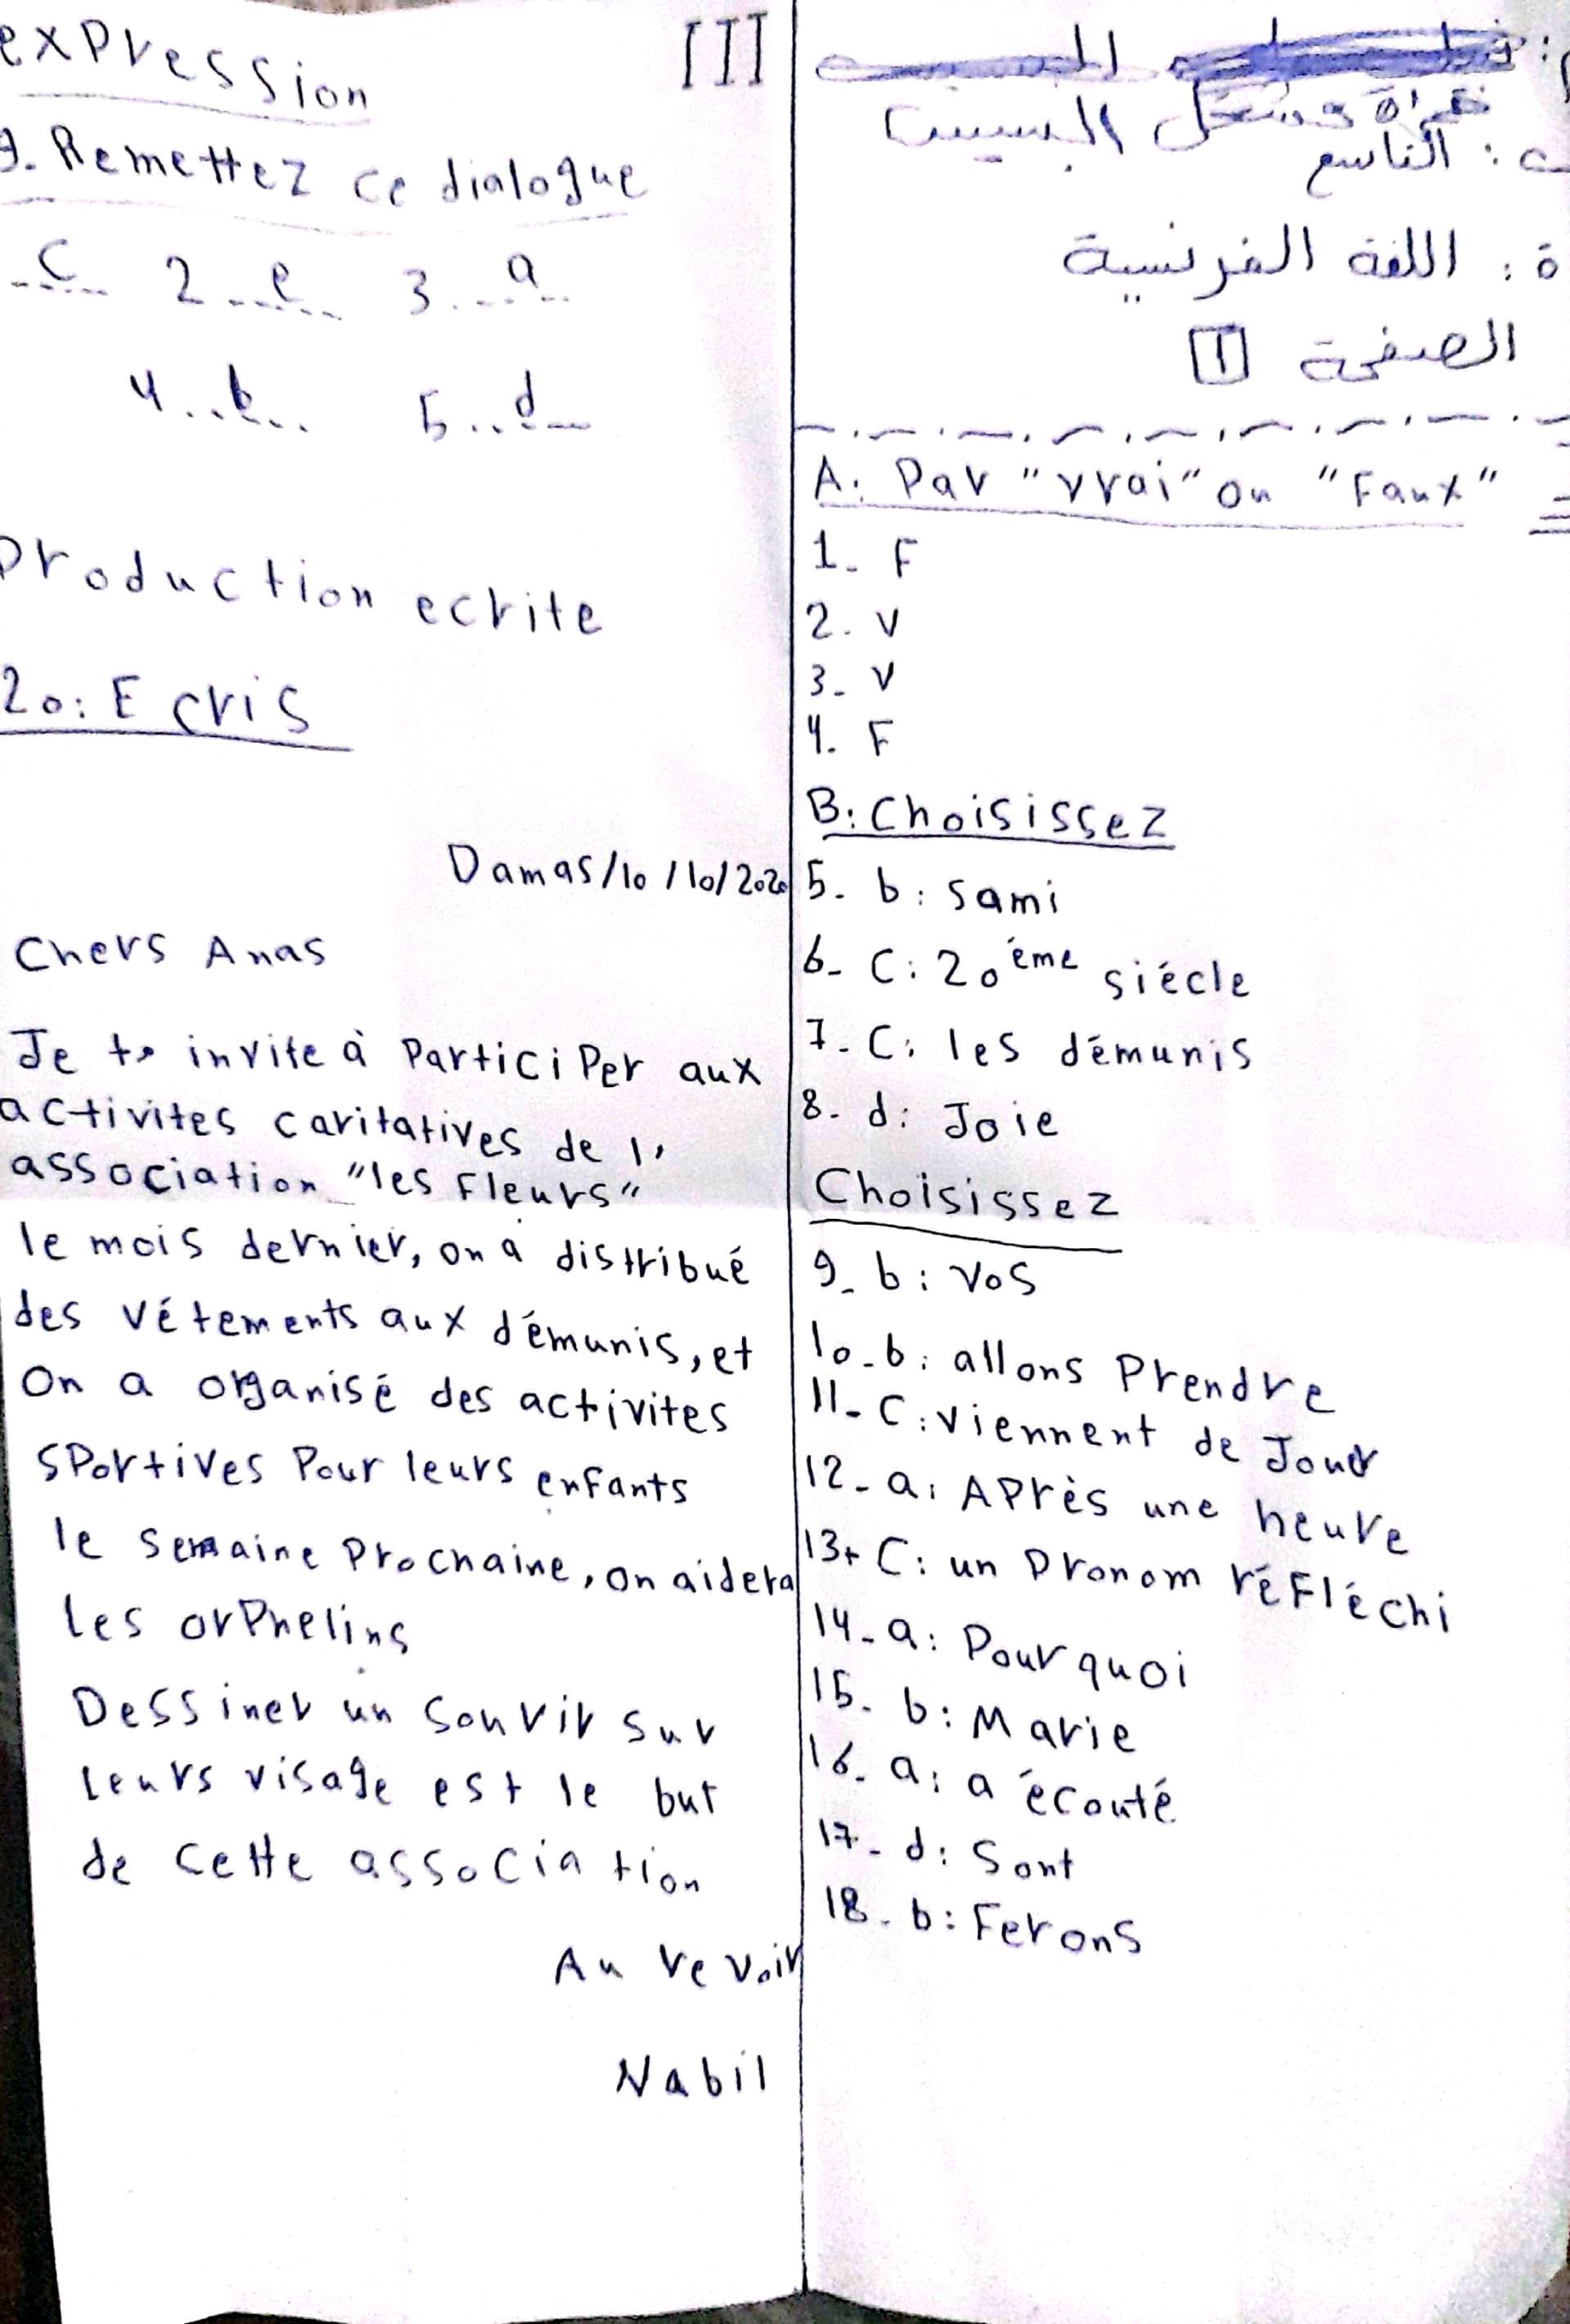 : التاسع
ة : اللغة الفرنسية
الصفحة 1
A: Par "vrai" ou "Faux"
1- F
2- V
3- V
4- F
B: Choisissez
5- b: Sami
6- C: 20 éme siécle
7- C: les démunis
8- d: Joie
Choisissez
9- b: Vos
10-b: allons Prendre
11- C: viennent de Jouer
12- a: APrès une heure
13+ C: un Pronom réFléchi
14- a: Pourquoi
15- b: Marie
16- a: a écouté
17- d: Sont
18- b: Ferons
exPression III
9. Remettez ce dialogue
..C.. 2 ..e.. 3...a..
4..b.. 5..d..
Production ecrite
20: Ecris
Damas/10/10/2020
Chers Anas
Je t' invite à ParticiPer aux
activites caritatives de l'
association "les Fleurs"
le mois dernier, on a distribué
des vétements aux démunis, et
On a organisé des activites
SPortives Pour leurs enfants
le semaine Prochaine, on aidera
les orPhelins
Dessiner un Sourir sur
leurs visage est le but
de cette association
Au revoir
Nabil